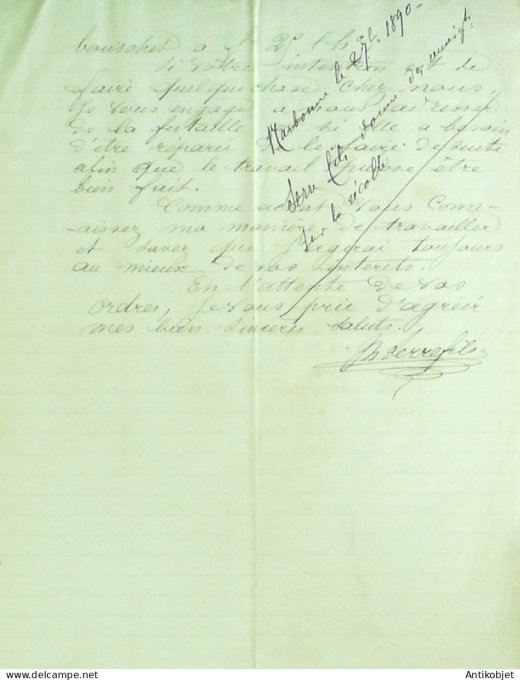 bouschet a f 25 l'h
Si votre intention est de
faire quelque chose chez nous,
Je vous engage a nous adresser
de la futaille et si elle a besoin
d'être réparée de le faire de suite
afin que le travail puisse être
bien fait.
Comme achat vous conn-
-aissez ma manière de travailler
et savez que j'agirai toujours
au mieux de vos intérêts.
En l'attente de vos
ordres, je vous prie d'agréer
mes bien sincères saluts.
Serre fils
Narbonne le 2 7bre 1890 -
Serre fils donne des renseigts
sur la récolte
Antikobjet